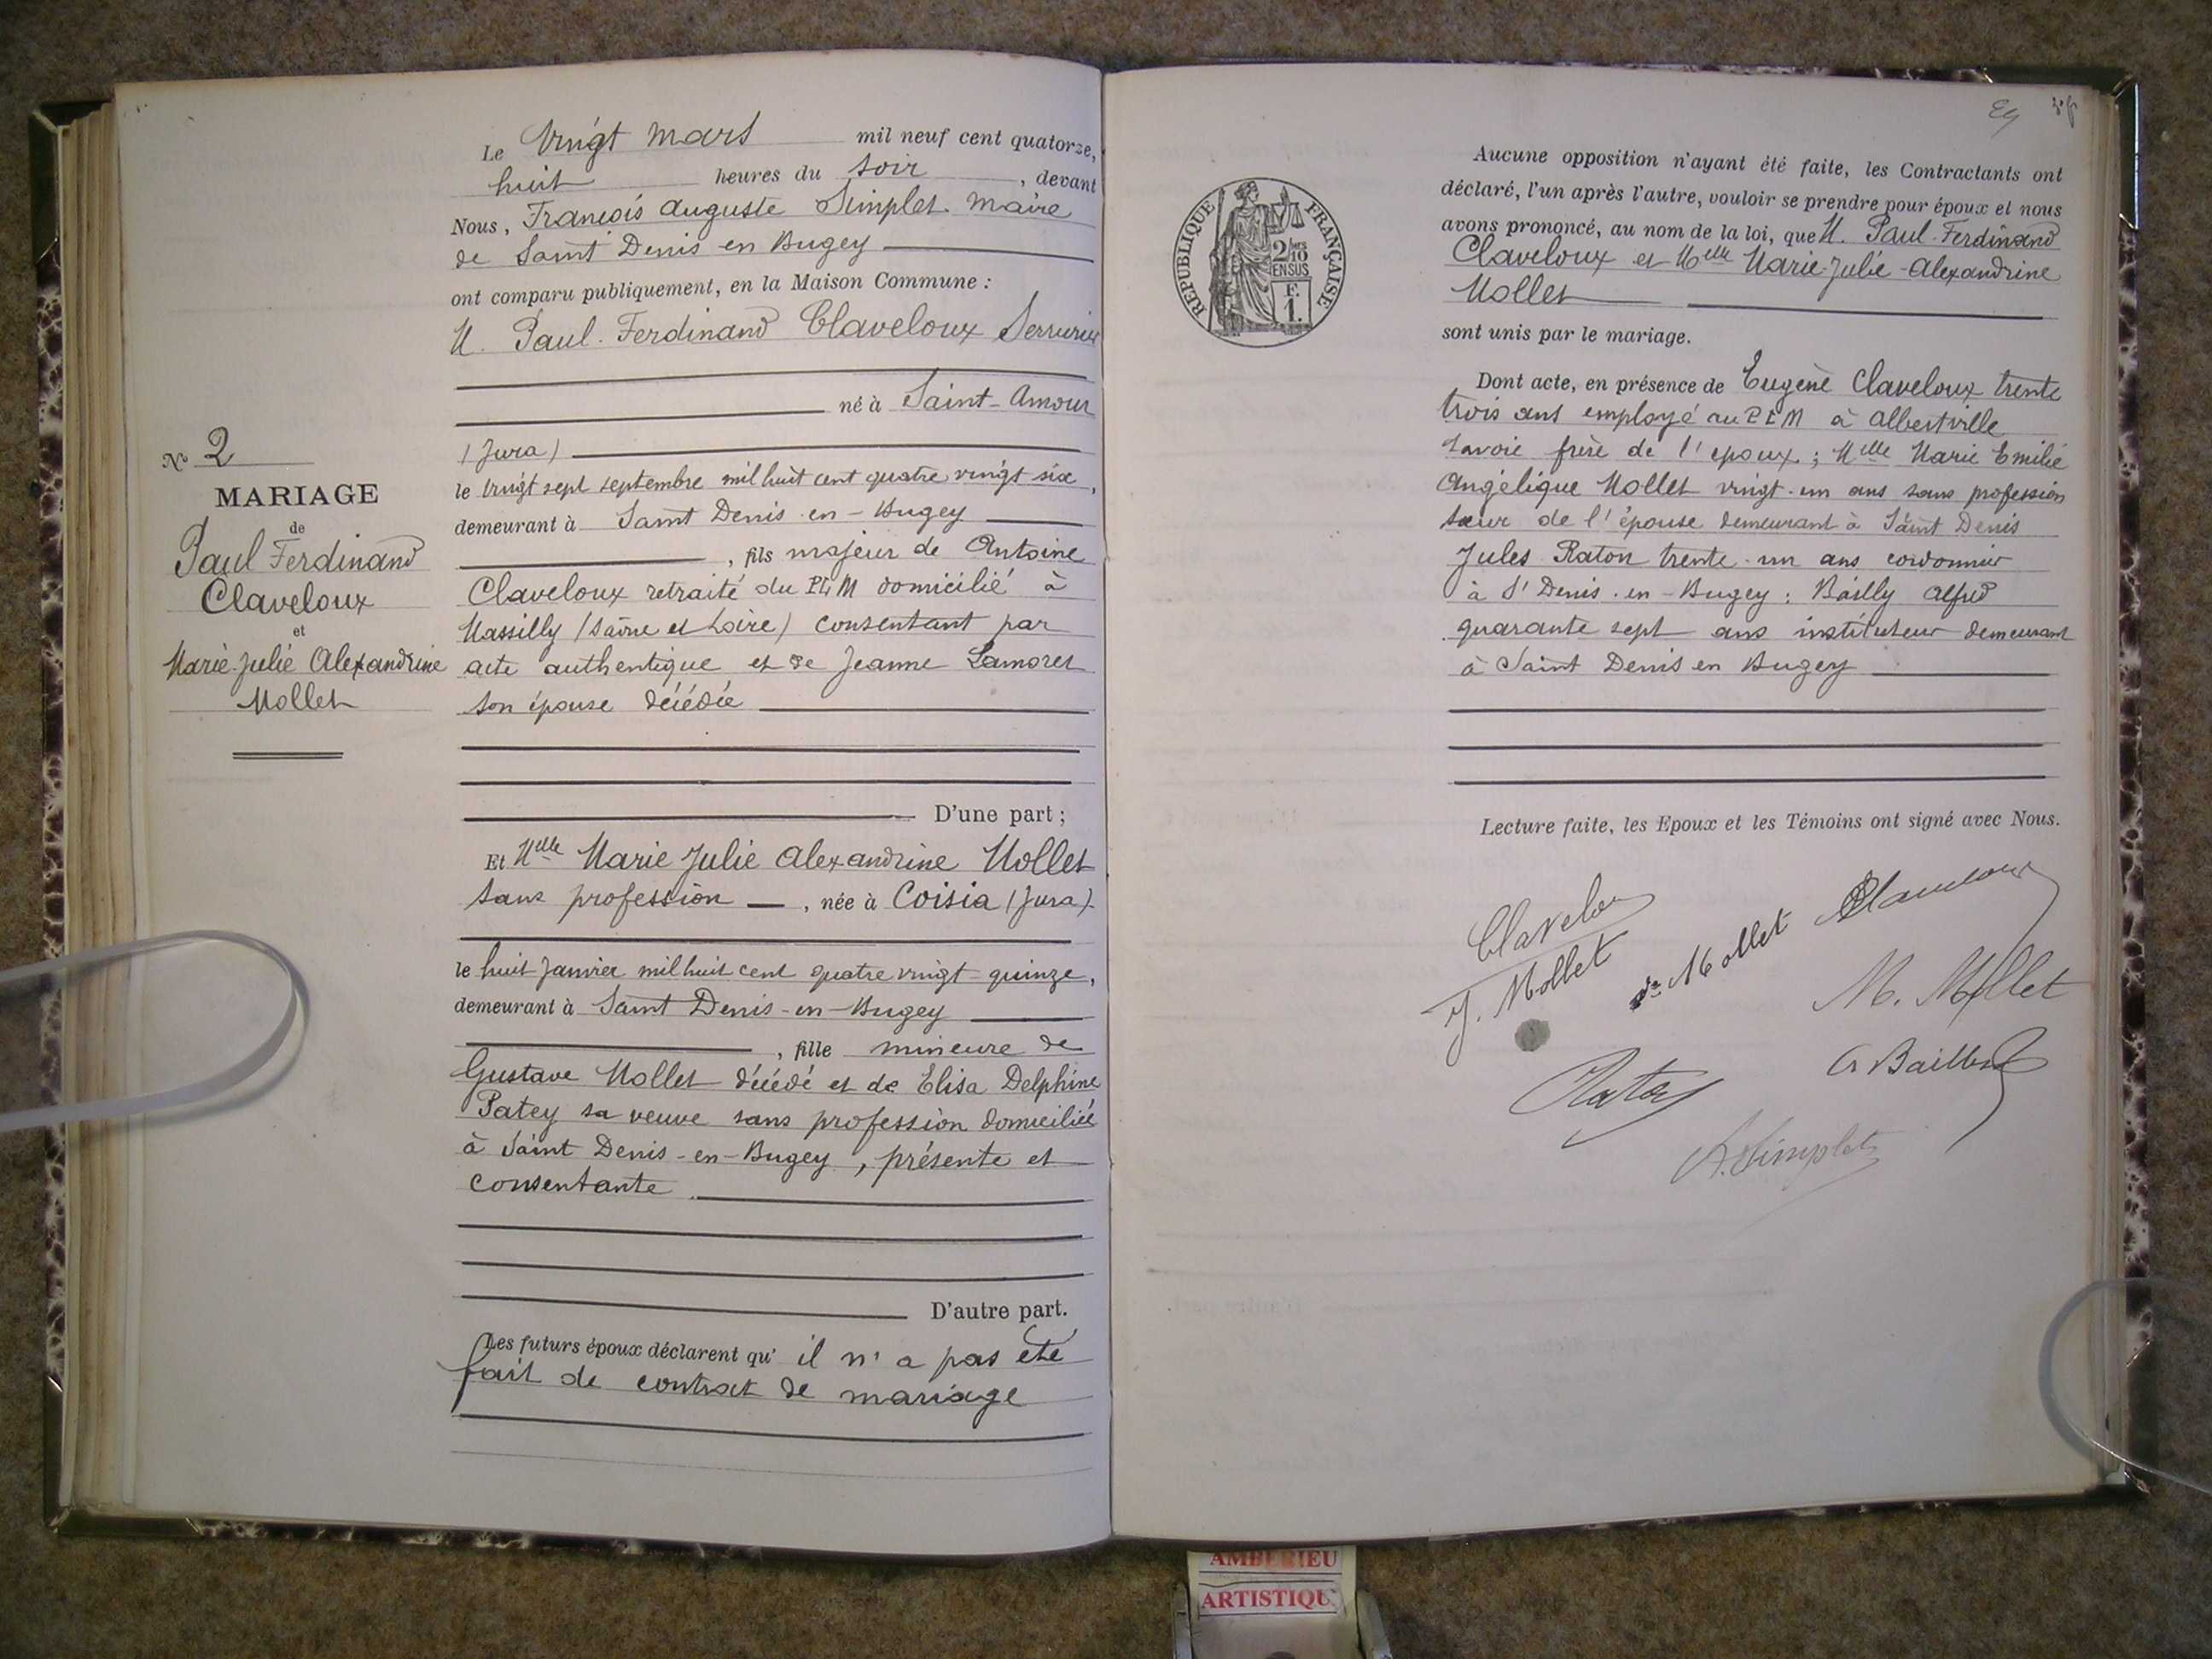 Le vingt mars mil neuf cent quatorze,
huit heures du soir, devant
Nous, François Auguste Simplet Maire
de Saint Denis en Bugey
ont comparu publiquement, en la Maison Commune :
M. Paul Ferdinand Claveloux Serrurier
né à Saint-Amour
(Jura)
le vingt sept septembre mil huit cent quatre vingt six,
demeurant à Saint Denis-en-Bugey
, fils majeur de Antoine
Claveloux retraité du PLM domicilié à
Massilly (Saône et Loire) consentant par
acte authentique et de Jeanne Lamoret
son épouse décédée
D'une part ;
Et Melle Marie Julie Alexandrine Mollet
sans profession, née à Coisia (Jura)
le huit Janvier mil huit cent quatre vingt-quinze,
demeurant à Saint Denis-en-Bugey
, fille mineure de
Gustave Mollet décédé et de Elisa Delphine
Patey sa veuve sans profession domiciliée
à Saint Denis-en-Bugey, présente et
consentante.
D'autre part.
Les futurs époux déclarent qu'il n'a pas été
fait de contrat de mariage
No 2
MARIAGE
de
Paul Ferdinand
Claveloux
et
Marie-Julie Alexandrine
Mollet
RÉPUBLIQUE FRANÇAISE
2/10
EN SUS
F.
1.
Aucune opposition n'ayant été faite, les Contractants ont
déclaré, l'un après l'autre, vouloir se prendre pour époux et nous
avons prononcé, au nom de la loi, que M. Paul-Ferdinand
Claveloux et Melle Marie-Julie-Alexandrine
Mollet
sont unis par le mariage.
Dont acte, en présence de Eugène Claveloux trente
trois ans employé au PLM à Albertville
Savoie frère de l'époux ; Melle Marie Emilie
Angélique Mollet vingt-un ans sans profession
sœur de l'épouse demeurant à Saint Denis
Jules Raton trente-un ans cordonnier
à St Denis-en-Bugey : Bailly Alfred
quarante sept ans instituteur demeurant
à Saint Denis en Bugey
Lecture faite, les Epoux et les Témoins ont signé avec Nous.
Claveloux
J. Mollet
Mollet
Claveloux
M. Mollet
Raton
A Bailly
A. Simplet
AMBERIEU
ARTISTIQU